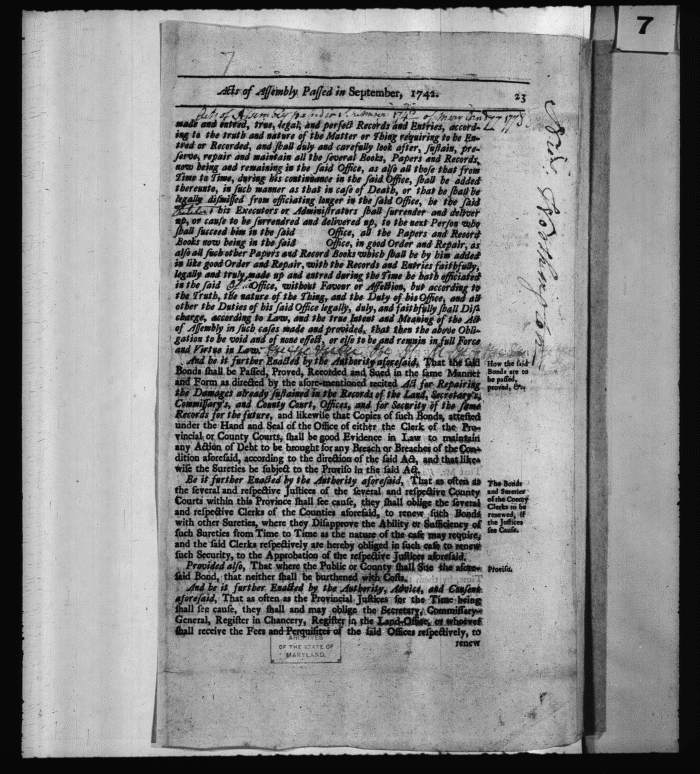 7
7
Acts of Assembly Passed in September, 1742.
23
made and entred, true, legal, and perfect Records and Entries, accord-
ing to the truth and nature of the Matter or Thing requiring to be En-
tred or Recorded, and shall duly and carefully look after, sustain, pre-
serve, repair and maintain all the several Books, Papers and Records,
now being and remaining in the said Office, as also all those that from
Time to Time, during his continuance in the said Office, shall be added
thereunto, in such manner as that in case of Death, or that he shall be
legally dismissed from officiating longer in the said Office, he the said
his Executors or Administrators shall surrender and deliver
up, or cause to be surrendred and delivered up, to the next Person who
shall succeed him in the said Office, all the Papers and Record
Books now being in the said Office, in good Order and Repair, as
also all such other Papers and Record Books which shall be by him added
in like good Order and Repair, with the Records and Entries faithfully,
legally and truly made up and entred during the Time he hath officiated
in the said Office, without Favour or Affection, but according to
the Truth, the nature of the Thing, and the Duty of his Office, and all
other the Duties of his said Office legally, duly, and faithfully shall Dis-
charge, according to Law, and the true Intent and Meaning of the Act
of Assembly in such cases made and provided, that then the above Obli-
gation to be void and of none effect, or else to be and remain in full Force
and Virtue in Law.
And be it further Enacted by the Authority aforesaid, That the said
Bonds shall be Passed, Proved, Recorded and Sued in the same Manner
and Form as directed by the afore-mentioned recited Act for Repairing
the Damages already sustained in the Records of the Land, Secretary's,
Commissary's, and County Court, Offices, and for Security of the same
Records for the future, and likewise that Copies of such Bonds, attested
under the Hand and Seal of the Office of either the Clerk of the Pro-
vincial or County Courts, shall be good Evidence in Law to maintain
any Action of Debt to be brought for any Breach or Breaches of the Con-
dition aforesaid, according to the direction of the said Act, and that like-
wise the Sureties be subject to the Proviso in the said Act.
How the said
Bonds are to
be passed,
proved, &c.
Be it further Enacted by the Authority aforesaid, That as often as
the several and respective Justices of the several and respective County
Courts within this Province shall see cause, they shall oblige the several
and respective Clerks of the Counties aforesaid, to renew such Bonds
with other Sureties, where they Disapprove the Ability or Sufficiency of
such Sureties from Time to Time as the nature of the case may require,
and the said Clerks respectively are hereby obliged in such case to renew
such Security, to the Approbation of the respective Justices aforesaid.
The Bonds
and Sureties
of the County
Clerks to be
renewed, if
the Justices
see Cause.
Provided also, That where the Public or County shall Sue the afore-
said Bond, that neither shall be burthened with Costs.
Proviso.
And be it further Enacted by the Authority, Advice, and Consent
aforesaid, That as often as the Provincial Justices for the Time being
shall see cause, they shall and may oblige the Secretary, Commissary-
General, Register in Chancery, Register in the Land-Office, or whoever
shall receive the Fees and Perquisites of the said Offices respectively, to
renew
ARCHIVES
OF THE STATE OF
MARYLAND.